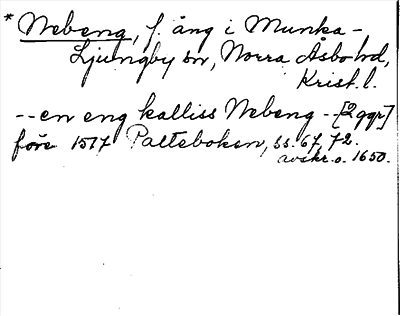 * Nebeng, f. äng i Munka-
Ljungby sn, Norra Åsbo hd,
Krist. l.
--en eng kalliss Nebeng--[2 ggr]
före 1517 Palteboken, ss. 67, 72.
avskr. o. 1650.